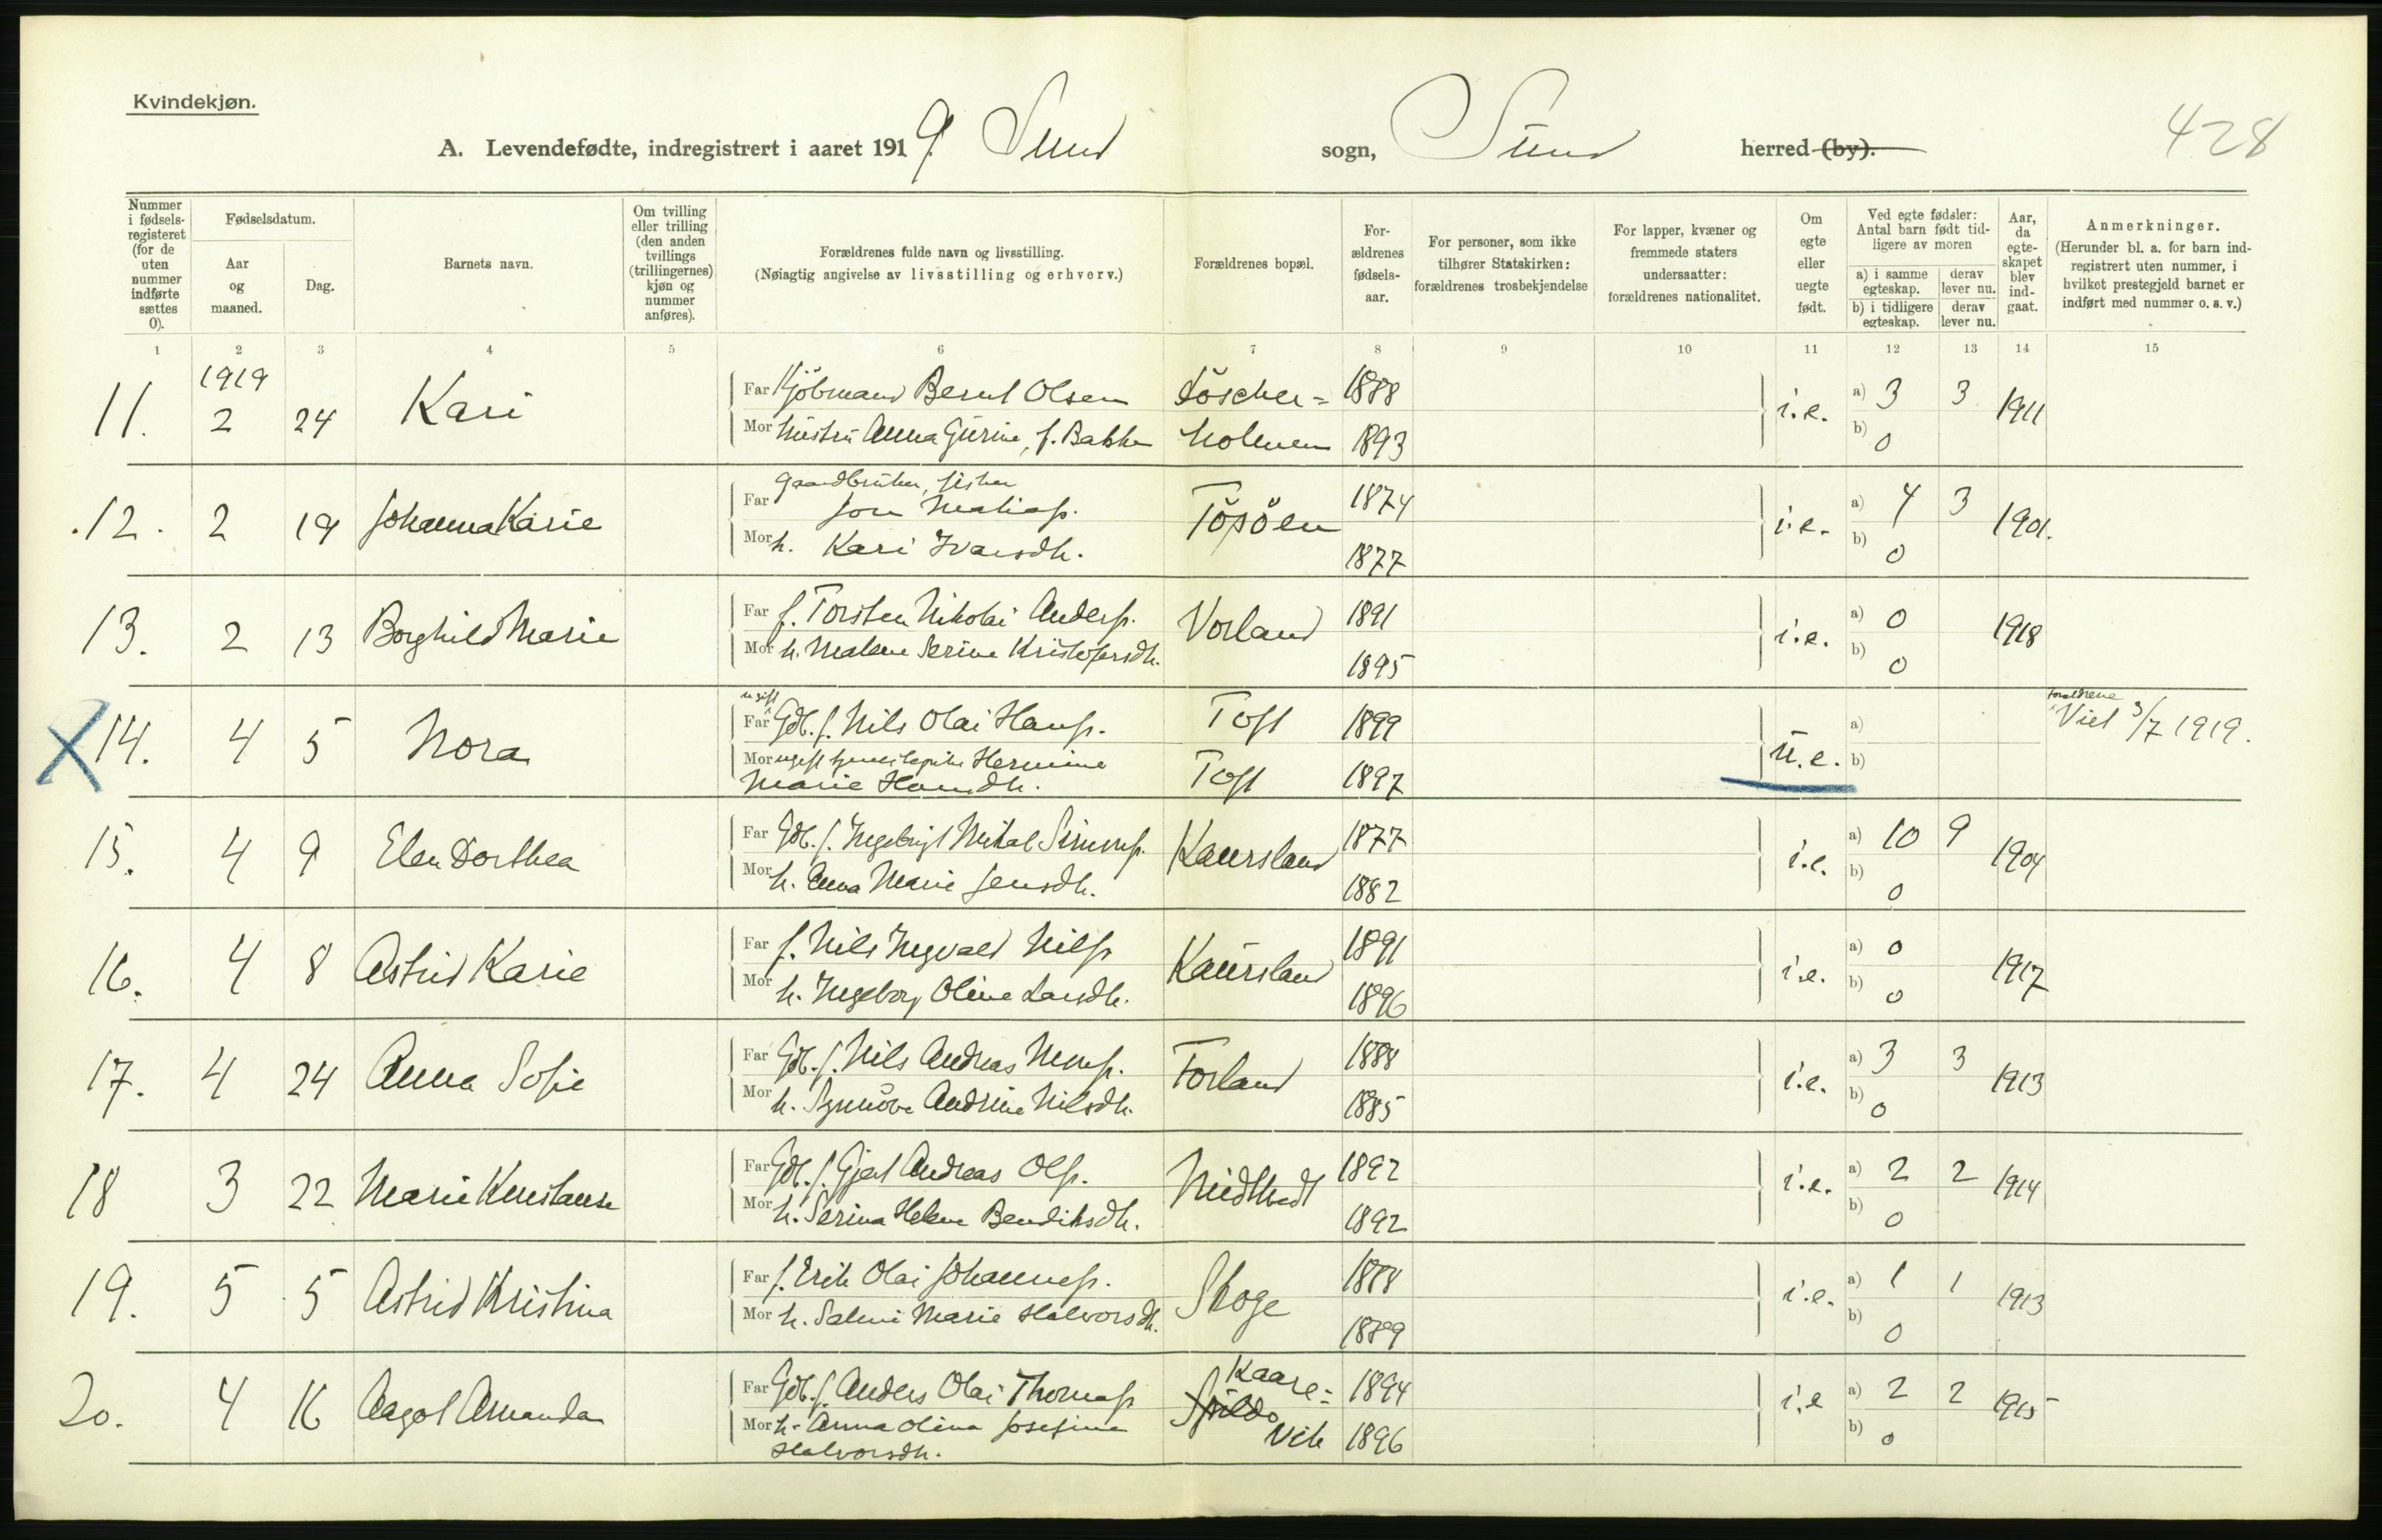 Kvindekjøn.
A. Levendefødte, indregistrert i aaret 1919. Sund sogn, Sund herred (by). 428
Nummer i fødsels-registeret (for de uten nummer indførte sættes 0).
Fødselsdatum.
Aar og maaned.
Dag.
Barnets navn.
Om tvilling eller trilling (den anden tvillings (trillingernes) kjøn og nummer anføres).
Forældrenes fulde navn og livsstilling.
(Nøiagtig angivelse av livsstilling og erhverv.)
Forældrenes bopæl.
For-ældrenes fødsels-aar.
For personer, som ikke tilhører Statskirken: forældrenes trosbekjendelse
For lapper, kvæner og fremmede staters undersaatter: forældrenes nationalitet.
Om egte eller uegte født.
Ved egte fødsler: Antal barn født tid-ligere av moren
a) i samme egteskap.
derav lever nu.
b) i tidligere egteskap.
derav lever nu.
Aar, da egte-skapet blev ind-gaat.
Anmerkninger.
(Herunder bl. a. for barn ind-registrert uten nummer, i hvilket prestegjeld barnet er indført med nummer o. s. v.)
1 2 3 4 5 6 7 8 9 10 11 12 13 14 15
1919
11. 2 24 Kari Far Kjöbmand Bernt Olsen Löscher= 1888 i.e. a) 3 3 1911
Mor hustru Anna Gurine, f. Bakke holmen 1893 b) 0
gaardbruker, fisker
12. 2 19 Johanna Karie Far Jon Matiass. Töpöen 1874 i.e. a) 4 3 1901.
Mor h. Kari Ivarsdtr. 1877 b) 0
13. 2 13 Borghild Marie Far f. Torsten Nikolai Anderss. Vorland 1891 i.e. a) 0 1918
Mor h. Malene Serine Kristofersdtr. 1895 b) 0
ugift
forældrene
X 14. 4 5 Nora Far Gdb. f. Nils Olai Hanss. Toft 1899 u.e. a) Viet 3/7 1919.
Mor ugift Hermine Toft 1897 b)
Marie Hansdtr.
15. 4 9 Elen Dorthea Far Gdb. f. Ingebrigt Mikal Simons. Kaursland 1877 i.e. a) 10 9 1904
Mor h. Anna Marie Jensdtr. 1882 b) 0
16. 4 8 Astrid Karie Far f. Nils Ingvald Nilss. Kaursland 1891 i.e. a) 0 1917
Mor h. Ingeborg Oline Larsdtr. 1896 b) 0
17. 4 24 Anna Sofie Far Gdb. f. Nils Andreas Monss. Forland 1888 i.e. a) 3 3 1913
Mor h. Synnöve Andrine Nilsdtr. 1885 b) 0
18 3 22 Marie Konstanse Far Gdb. f. Gjert Andreas Olss. Midttvedt 1892 i.e. a) 2 2 1914
Mor h. Serina Helene Bendiksdtr. 1892 b) 0
19. 5 5 Astrid Kristina Far f. Erik Olai Johanness. Skoge 1888 i.e. a) 1 1 1913
Mor h. Salmi Marie Halvorsdtr. 1889 b) 0
20. 4 16 Aagot Amanda Far Gdb. f. Anders Olai Thomass Kaare= 1894 i.e a) 2 2 1915
Mor h. Anna Olina Josefine Spildo Vik 1896 b) 0
Halvorsdtr.